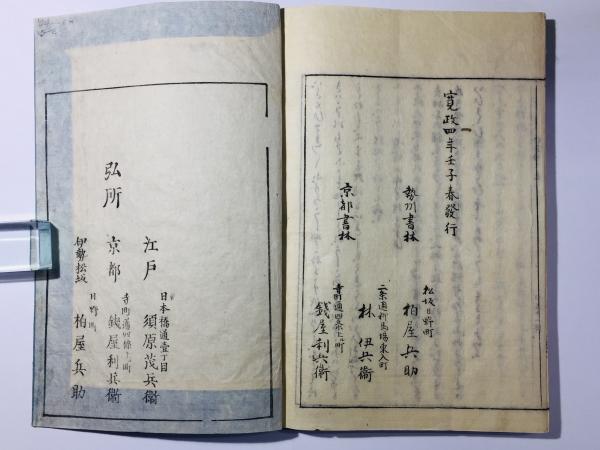 寛政四年壬子春發行
勢州書林
松坂日野町
柏屋兵助
京都書林
二条通柳馬場東入町
林伊兵衛
寺町通四条上ル町
銭屋利兵衛
弘所
江戸
日本橋通壹丁目
須原茂兵衛
京都
寺町通四條上ル町
銭屋利兵衛
伊勢松坂
日野町
柏屋兵助